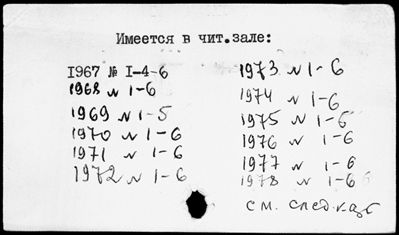 Имеется в чит.зале:
1967 № 1-4-6
1968 № 1-6
1969 № 1-5
1970 № 1-6
1971 № 1-6
1972 № 1-6
1973 № 1-6
1974 № 1-6
1975 № 1-6
1976 № 1-6
1977 № 1-6
1978 № 1-6
см. след.